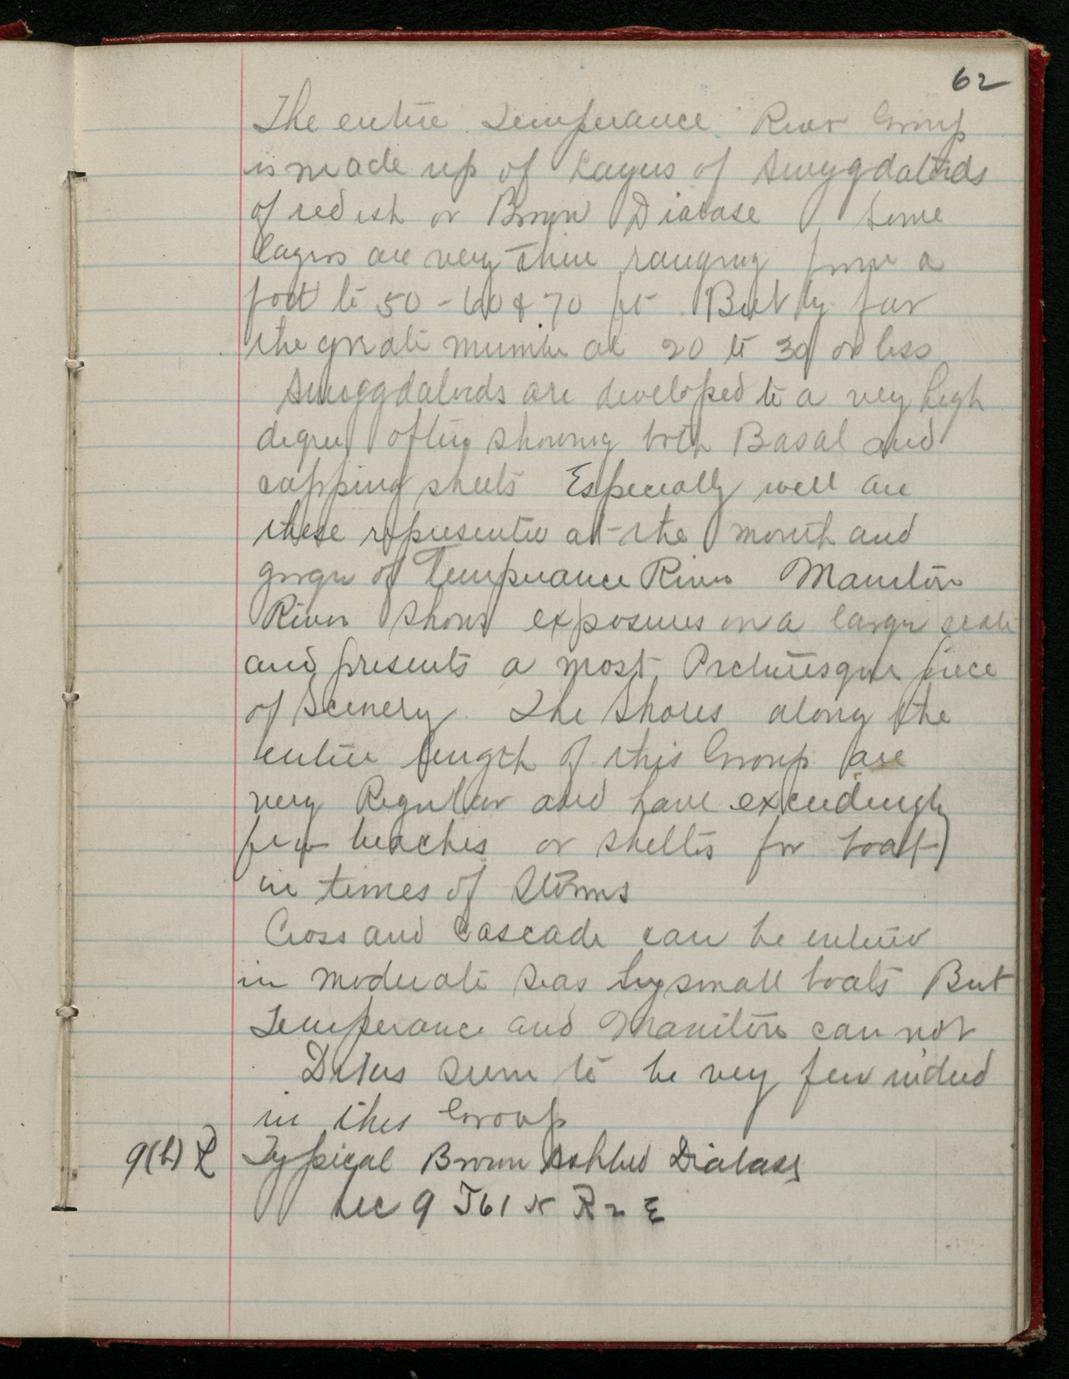 62
The entire Temperance River Group
is made up of Layers of Amygdaloids
of redish or Brown Diabase Some
layers are very thin ranging from a
foot to 50 - 60 & 70 ft. But by far
the greate number at 20 to 30 or less
Amyggdaloids are developed to a very high
degree often showing both Basal and
capping sheets Especially well are
these represented at the mouth and
gorge of Temperance River Manitou
River shows exposures on a large scale
and presents a most Picturesque piece
of Scenery. The Shores along the
entire length of this Group are
very Regular and have exceedingly
few beaches or shelters for boats
in times of Storms
Cross and Cascade can be entered
in moderate seas by small boats But
Temperance and Manitou can not
Dikes seem to be very few indeed
in this Group
9(h) Typical Brown Ashbed Diabase
Sec 9 T61 N R2 E